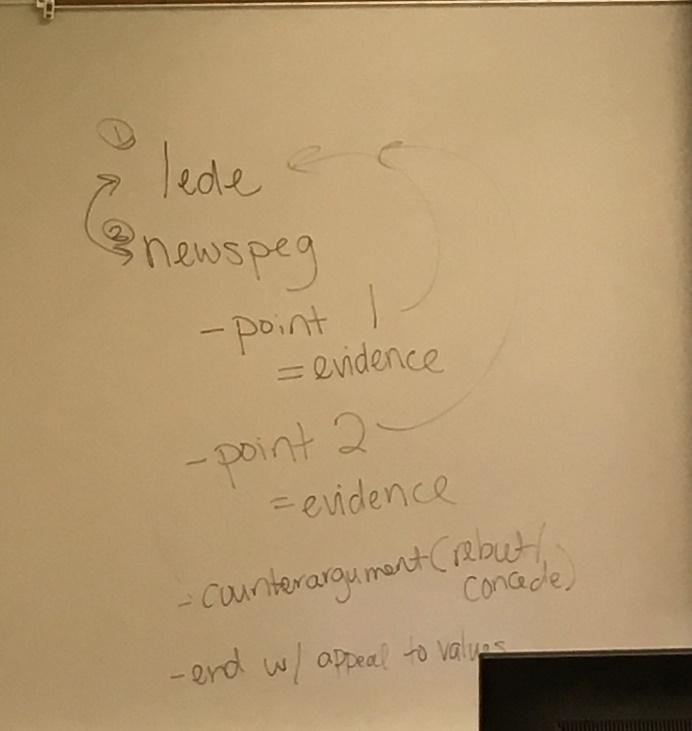 ①
lede
② newspeg
- point 1
= evidence
- point 2
= evidence
- counterargument (rebut/
concede)
- end w/ appeal to values